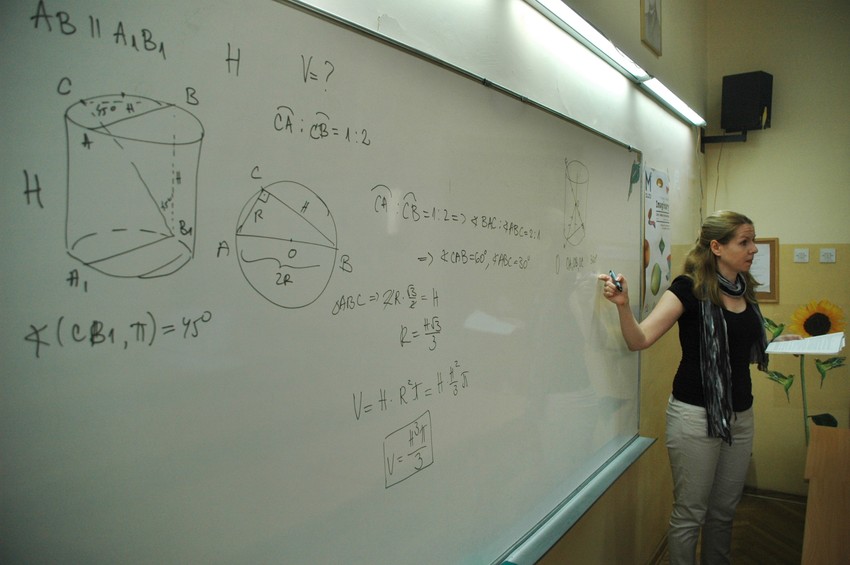 AB || A₁B₁
H
V=?
C
45° H
B
A
CA : CB = 1:2
H
H
B₁
A₁
∢(CB₁, π) = 45°
C
R
H
A
O
B
2R
CA : CB = 1:2 => ∢BAC : ∢ABC = 2:1
=> ∢CAB = 60°, ∢ABC = 30°
△ABC => 2R · √3/2 = H
R = H√3/3
V = H · R²π = H · H²/3 π
V = H³π/3
M